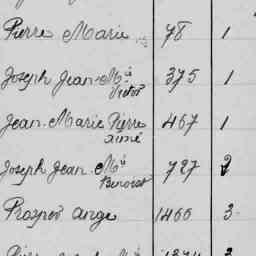 Pierre Marie 78 1
Joseph Jean-Mie 375 1
Victor
Jean-Marie Pierre 467 1
aimé
Joseph Jean Mie 727 2
Benoist
Prosper ange 1466 3